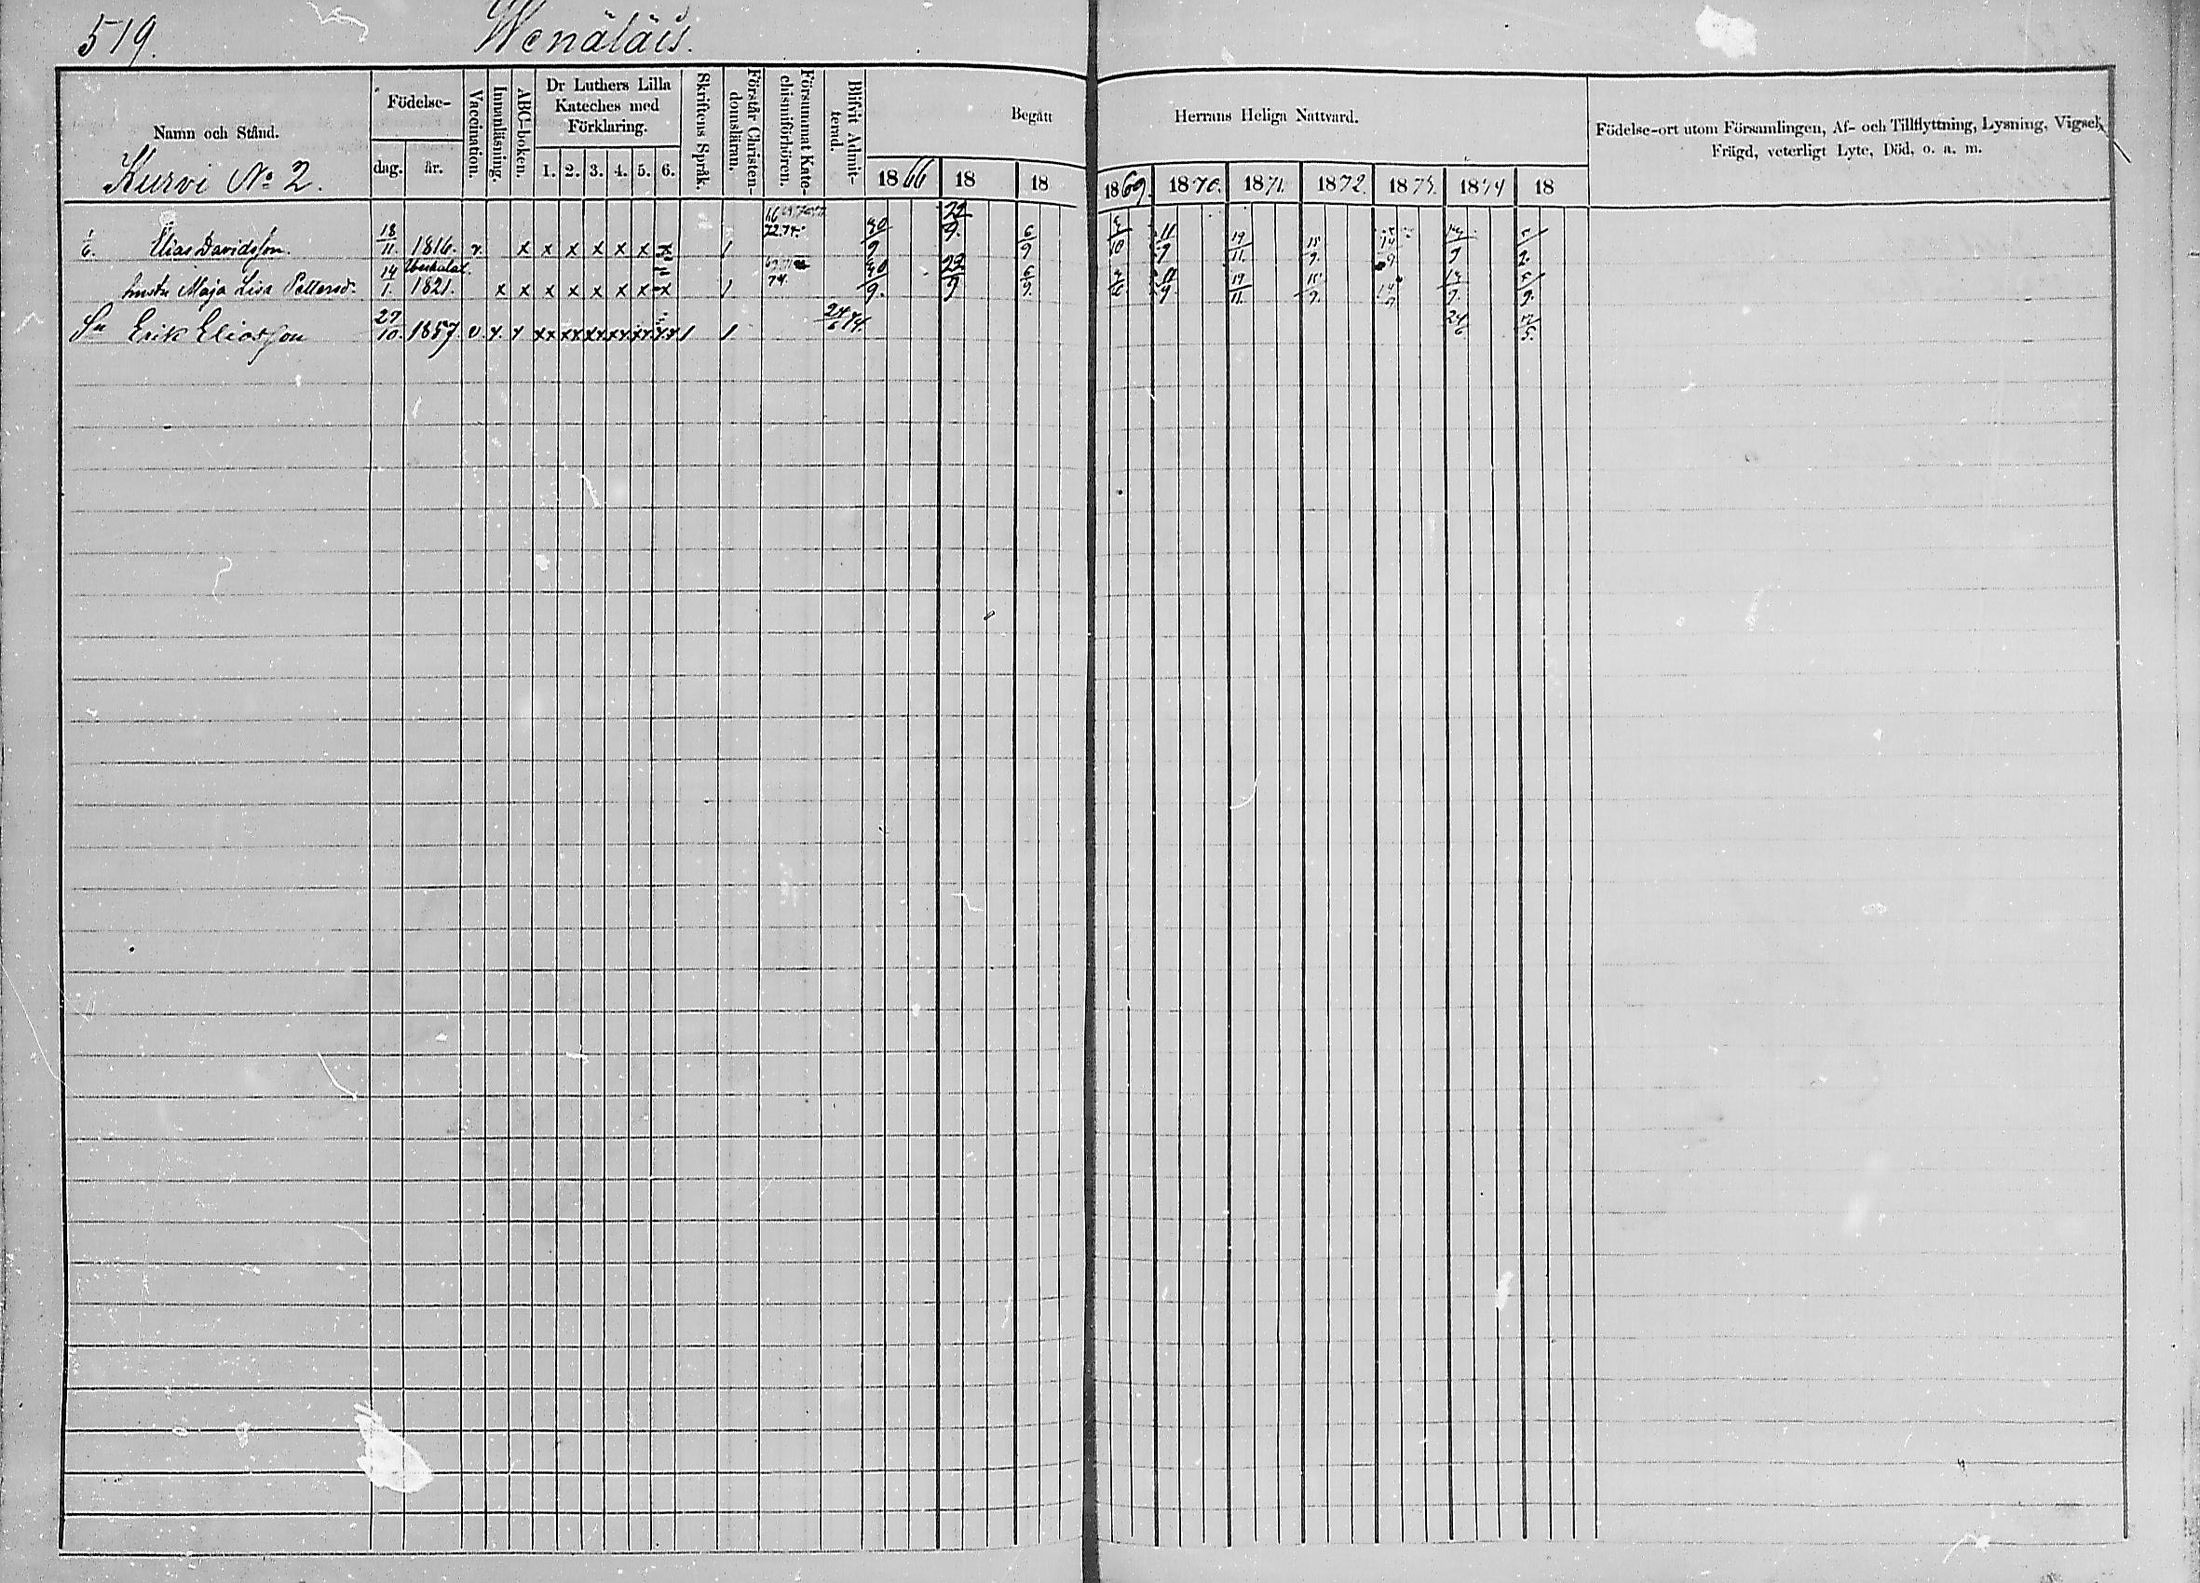 519. Wenäläis.
Namn och Stånd.
Födelse-
dag. år.
Vaccination.
Innanläsning.
ABC-boken.
Dr Luthers Lilla
Kateches med
Förklaring.
1. 2. 3. 4. 5. 6.
Skriftens Språk.
Förstår Christen-
domsläran.
Försummat Kate-
chismiförhören.
Blifvit Admit-
terad.
Begått Herrans Heliga Nattvard.
1866 18 18 1869. 1870. 1871. 1872. 1873. 1874 18
Födelse-ort utom Församlingen, Af- och Tillflyttning, Lysning, Vigsel,
Frägd, veterligt Lyte, Död, o. a. m.
Kurvi No 2.
1/6. Elias Davidsson. 18/11 1816. v. x x x x x x x 1 72.74. 30/9 22/9. 6/9 11/9 19/11. 15/9. 14/9
hustru Maja Lisa Pettersd. 14/1. 1821. x x x x x x x x 1 74. 30/9. 22/9 6/9. 11/9. 19/11. 15/9. 14/9
Sn Erik Eliasson 27/10. 1857. v. x. x xx xx xx xx xx xx 1 1 24/6 74 24/6